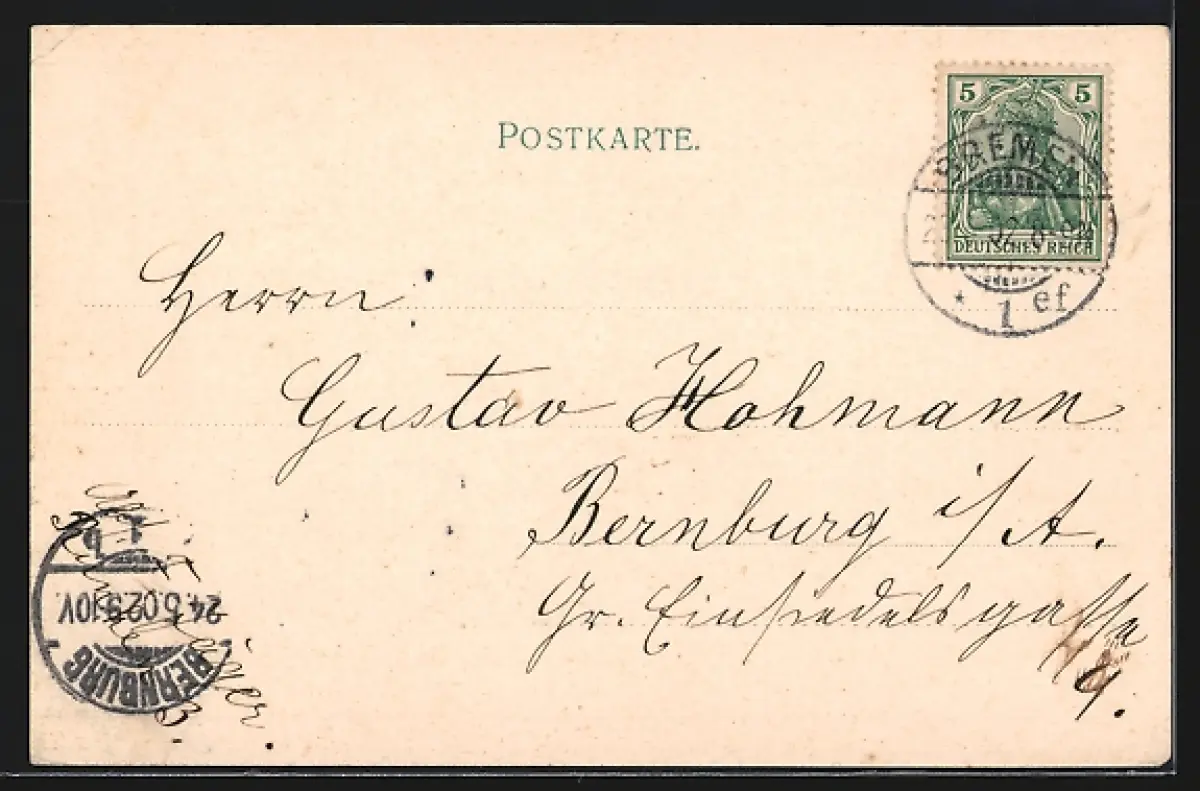 POSTKARTE.
5 5
BREMEN
DEUTSCHES REICH
* 1 ef
Herrn
Gustav Hohmann
Bernburg i/A.
Gr. Einsiedelsgasse
4.
BERNBURG
24.5.02 9-10V.
1 b